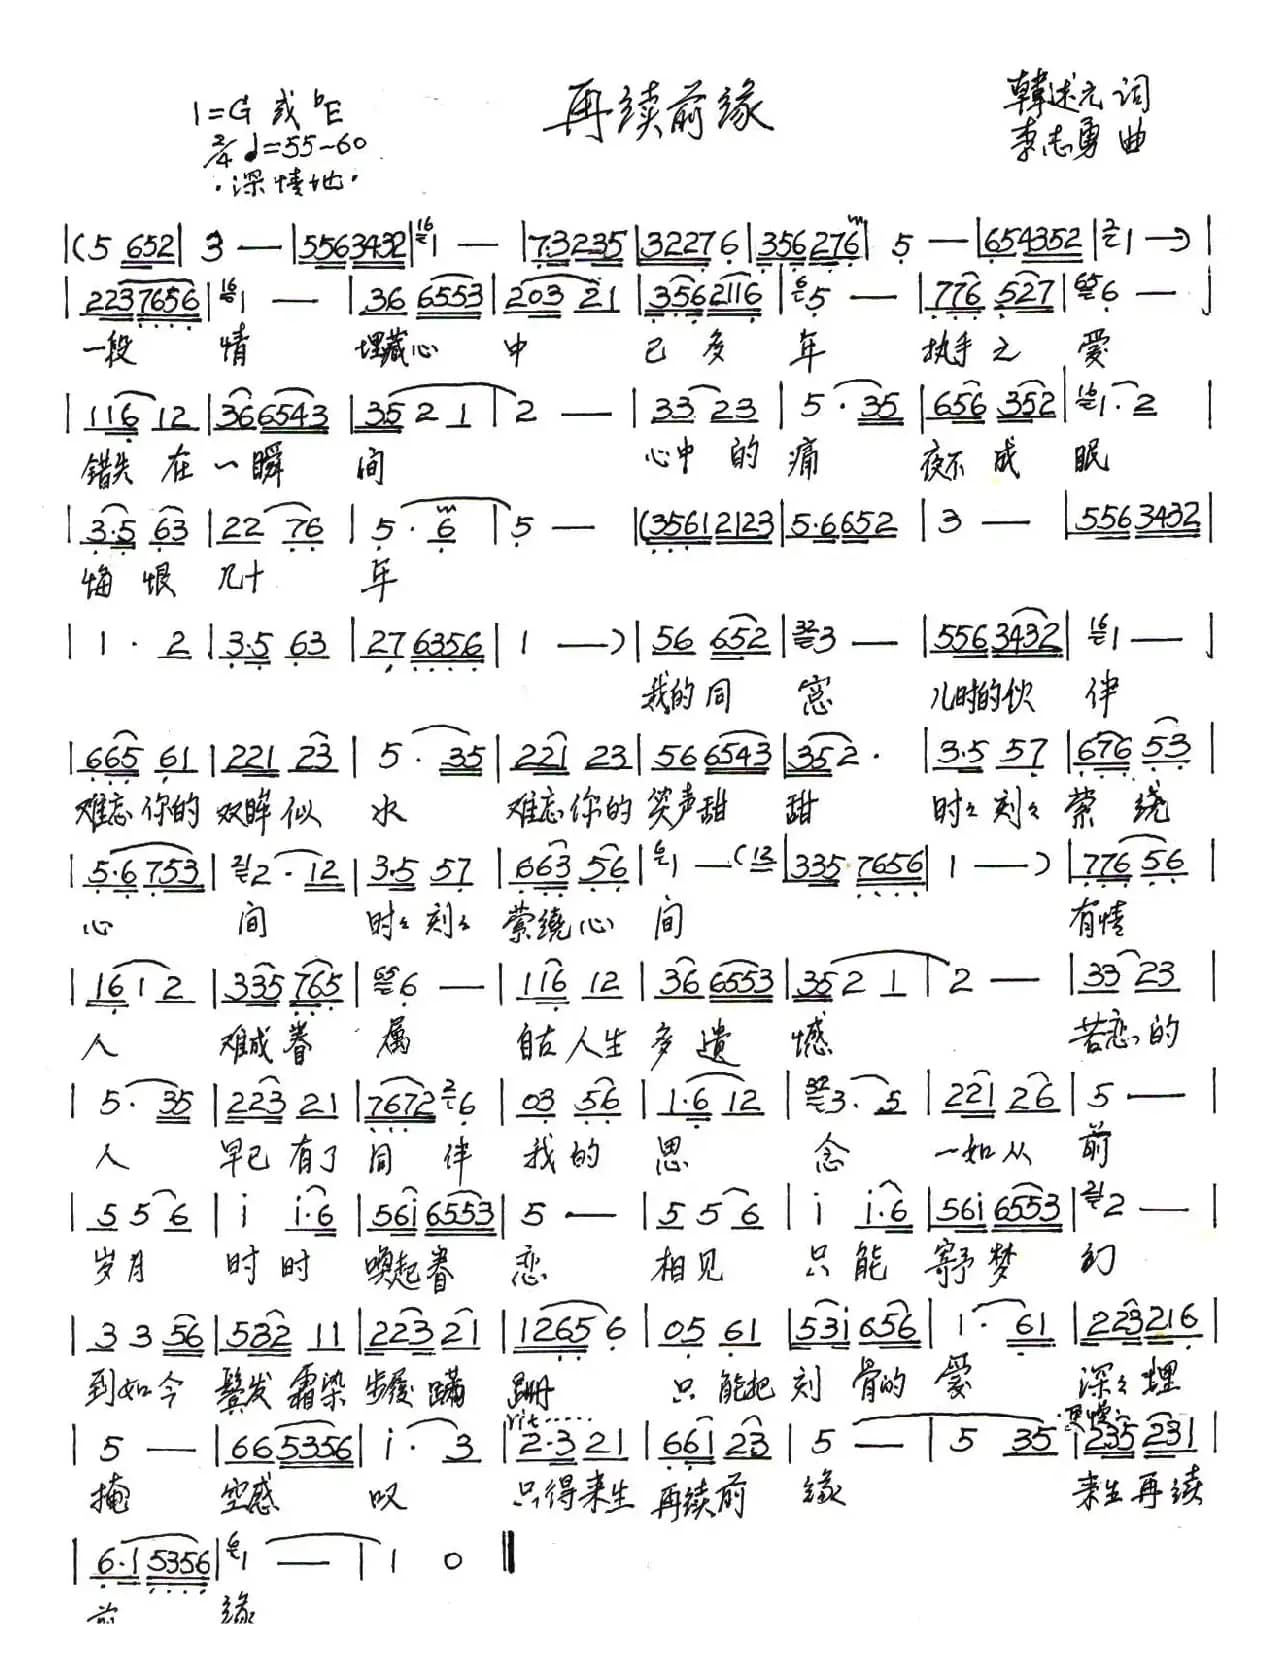 再续前缘
1=G 或 ♭E
韓述元 词
2/4 ♩=55~60
李志勇 曲
·深情地·
|(5 652| 3 — |5563432| 1 — |7·3235|32276|356276| 5 — |654352| 1 —)|
|2237656| 1 — |36 6553|203 21|3562116| 5 — |776 527| 6 — |
一段 情 埋藏心 中 已多 年 执手之 爱
|116 12|366543|35 2 1|2 — |33 23|5·35|656 352|1·2|
错失 在 一瞬 间 心中 的 痛 夜不 成 眠
|3·5 63|22 76|5·6|5 — |(35612123|5·6652|3 — |5563432|
悔恨 几十 年
|1·2|3·5 63|27 6356|1 —)|56 652|3 — |5563432|1 — |
我的同 窓 儿时的伙 伴
|665 61|221 23|5·35|221 23|56 6543|352·|3·5 57|676 53|
难忘你的 双眸似 水 难忘你的 笑声甜 甜 时々刻々 萦绕
|5·6753|2·12|3·5 57|663 56|1 —(12|335·7656|1 —)|776 56|
心 间 时々刻々 萦绕心 间 有情
|16 1 2|335765|6 — |116 12|36 6553|35 2 1|2 — |33 23|
人 难成眷 属 自古人生 多遗 憾 苦恋的
|5·35|223 21|7672 6|03 56|1·6 12|3·5|221 26|5 — |
人 早已有了 同伴 我的 思 念 一如从 前
|5 5 6|i i·6|56i 6553|5 — |5 5 6|i i·6|56i 6553|2 — |
岁月 时时 唤起眷 恋 相见 只能 寄予梦 幻
|3 3 56|532 11|223 21|1265 6|05 61|53i 656|1·61|2232216|
到如今 鬓发霜染 步履蹒 跚 只能把 刻骨的 爱 深々埋
rit...... ·更慢·
|5 — |66 5356|i·3|2·3 21|661 23|5 — |5 35|235 231|
掩 空感 叹 只得来生 再续前 缘 来生再续
|6·1 5356|1 — |1 0‖
前 缘